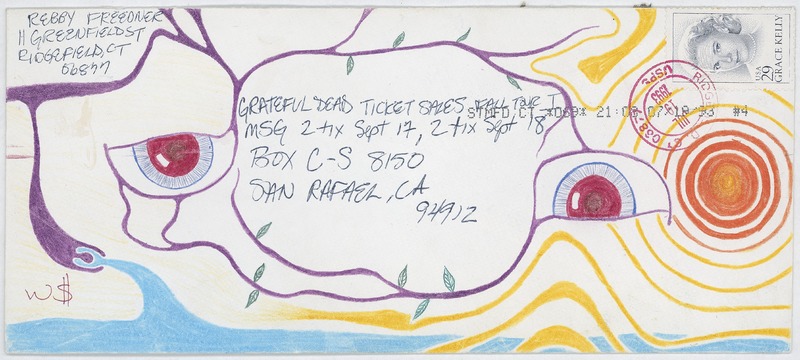 REBBY FREEDNER
11 GREENFIELD ST
RIDGEFIELD, CT
06877
USA 29
GRACE KELLY
USPS
1993
GRATEFUL DEAD TICKET SALES, FALL TOUR I
STMFD, CT *069* 21:00 07/18/93 #4
MSG 2 tix Sept 17, 2 tix Sept 18
BOX C-S 8150
SAN RAFAEL, CA
94912
W$